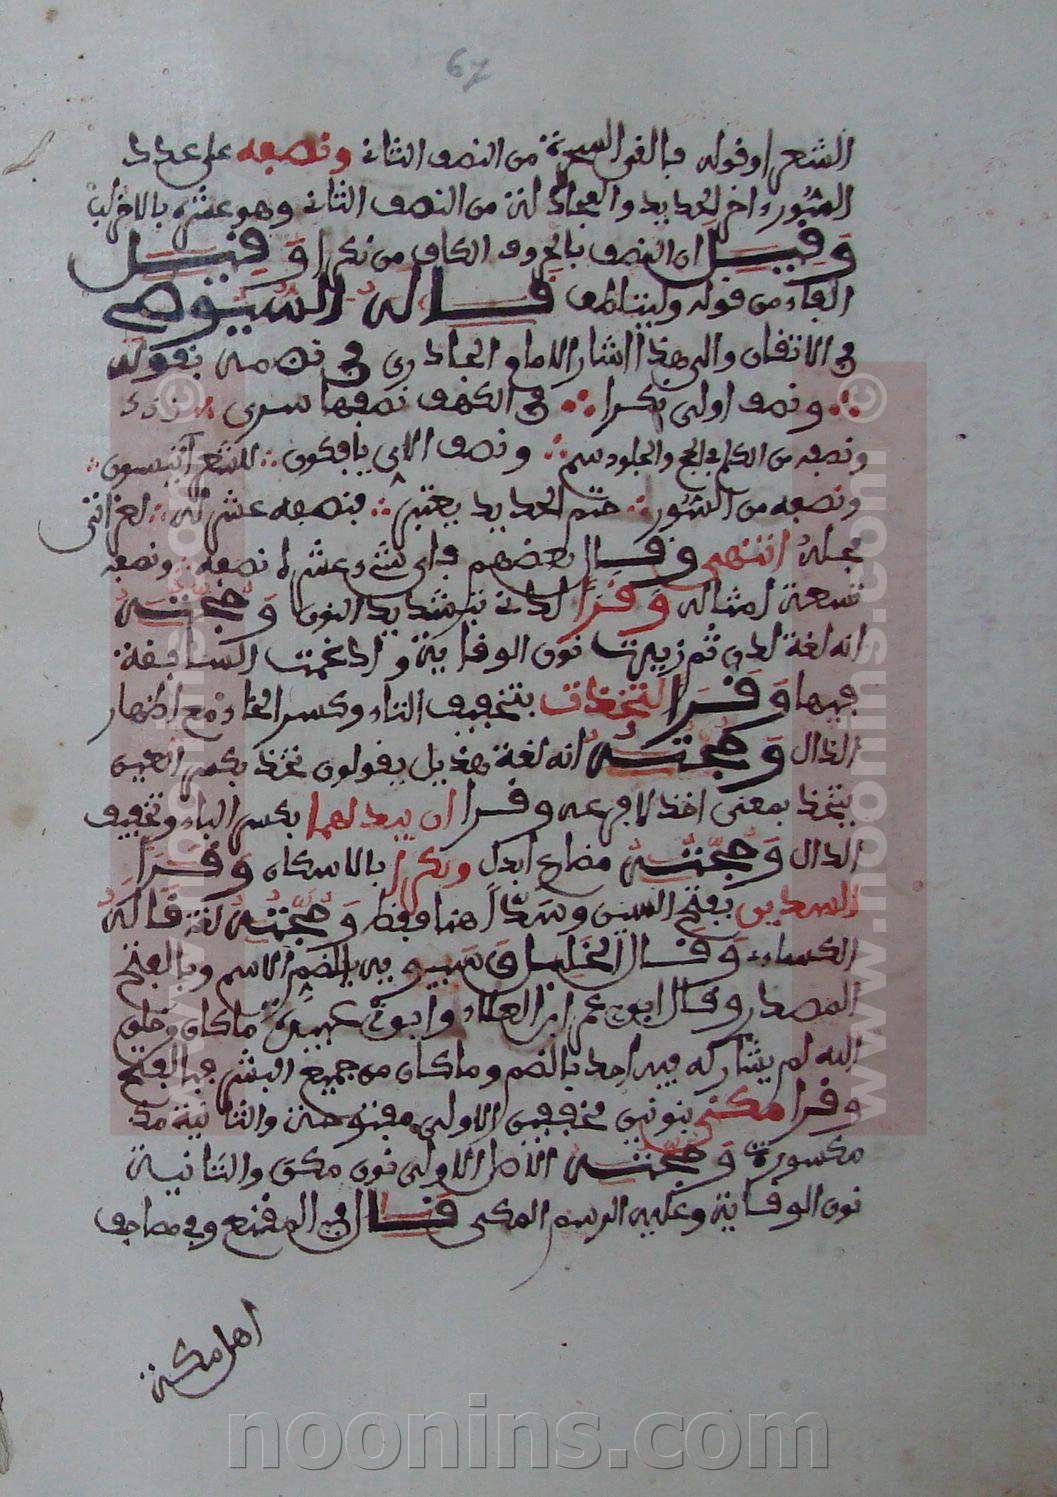 67
الشعرا وقوله فالقى السحرة من النصف الثانى ونصفه على عدد
السور ءاخر الحديد والمجادلة من النصف الثانى وهو عشرة بالاحزاب
وقيل ان النصف بالحروف الكاف من نكرا وقيل
الفاء من قوله وليتلطف قاله السيوطي
في الاتقان والى هذا اشار الامام في نظمه بقوله
ونصف اولى نكرا في الكهف نصفها سرى
ونصفه من الكلم في الحج والجلود سم ونصف الاى يافكون للشعرا
ونصفه من السور ختم الحديد يعتبر فنصفه عشر له
انتهى وقال بعضهم فاى شيء عشر له نصفه ونصفه
تسعة امثاله وقرا لدنى بتشديد النون وحجته
انه لغة لدن ثم زيدت نون الوقاية وادغمت السابقة
فيها وقرا لتخذت بتخفيف التاء وكسر الخاء مع اظهار
الذال وحجته انه لغة هذيل يقولون تخذ بكسر العين
يتخذ بمعنى اخذ وقرا ان يبدلهما بكسر الباء وتخفيف
الدال وحجته مضارع ابدل ونكرا بالاسكان وقرا
السدين بفتح السين وسدا هنا فقط وحجته لغة قاله
الكساءى وقال الخليل وسيبويه بالضم الاسم وبالفتح
المصدر وقال ابو عمر ابن العلاء وابو عبيدة ما كان من خلق
الله لم يشاركه فيه احد بالضم وما كان من جميع البشر فبالفتح
وقرا مكنى بنونين مخففين الاولى مفتوحة والثانية
مكسورة وحجته الاصل الاولى نون مكن والثانية
نون الوقاية وعليه الرسم المكى قال في المقنع وفي مصاحف
اهل مكة
noonins.com
www.noonins.com ©
www.noonins.com ©